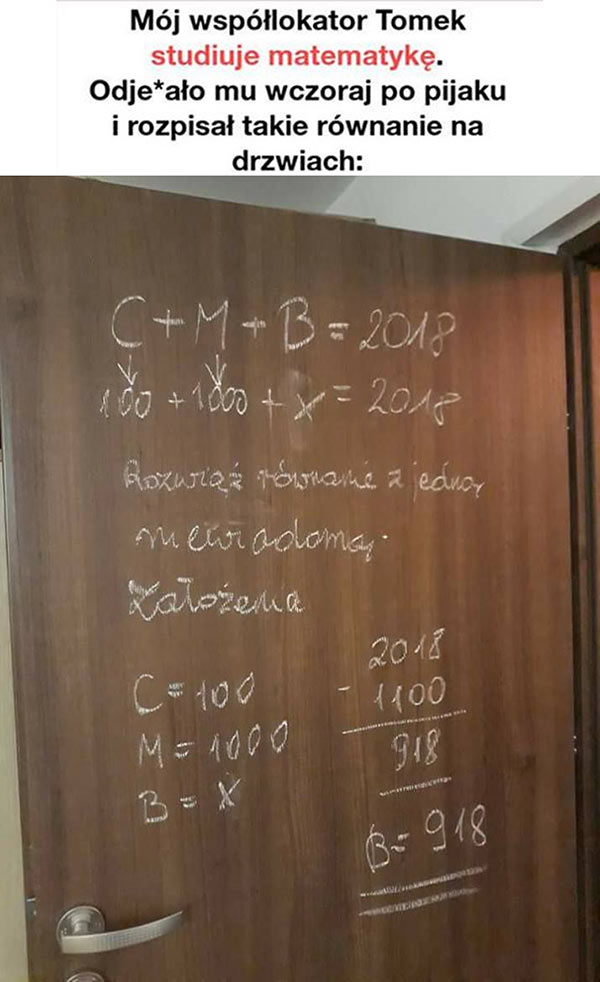 Mój współlokator Tomek
studiuje matematykę.
Odje*ało mu wczoraj po pijaku
i rozpisał takie równanie na
drzwiach:
C+M+B=2018
100+1000+x=2018
Rozwiąż równanie z jedną
niewiadomą.
Założenia
C=100
M=1000
B=x
2018
- 1100
918
B=918